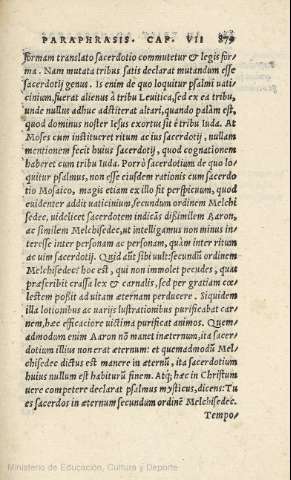 PARAPHRASIS. CAP. VII 879
formam translato sacerdotio commutetur & legis for
ma. Nam mutata tribus satis declarat mutandum esse
sacerdotij genus. Is enim de quo loquitur psalmi uati
cinium, fuerat alienus à tribu Leuitica, sed ex ea tribu,
unde nullus adhuc adstiterat altari, quando palàm est,
quod dominus noster Iesus exortus sit è tribu Iuda. At
Moses cum institueret ritum ac ius sacerdotij, nullam
mentionem fecit huius sacerdotij, quod cognationem
haberet cum tribu Iuda. Porrò sacerdotium de quo lo
quitur psalmus, non esse eiusdem rationis cum sacerdo
tio Mosaico, magis etiam ex illo fit perspicuum, quod
euidenter addit uaticinium, secundum ordinem Melchi
sedec, uidelicet sacerdotem indicãs dißimilem Aaron,
ac similem Melchisedec, ut intelligamus non minus in
teresse inter personam ac personam, quàm inter ritum
ac uim sacerdotij. Quid aũt sibi uult: secundũ ordinem
Melchisedec? hoc est, qui non immolet pecudes, quas
præscribit crassa lex & carnalis, sed per gratiam cœ
lestem poßit ad uitam æternam perducere. Siquidem
illa lotionibus ac uarijs lustrationibus purificabat car
nem, hæc efficaciore uictima purificat animos. Quem
admodum enim Aaron nõ manet in æternum, ita sacer
dotium illius non erat æternum: et quemadmodũ Mel
chisedec dictus est manere in æternũ, ita sacerdotium
huius nullum est habiturũ finem. Atq; hæc in Christum
uere competere declarat psalmus mysticus, dicens: Tu
es sacerdos in æternum secundum ordinẽ Melchisedec.
Tempo,
Ministerio de Educación, Cultura y Deporte